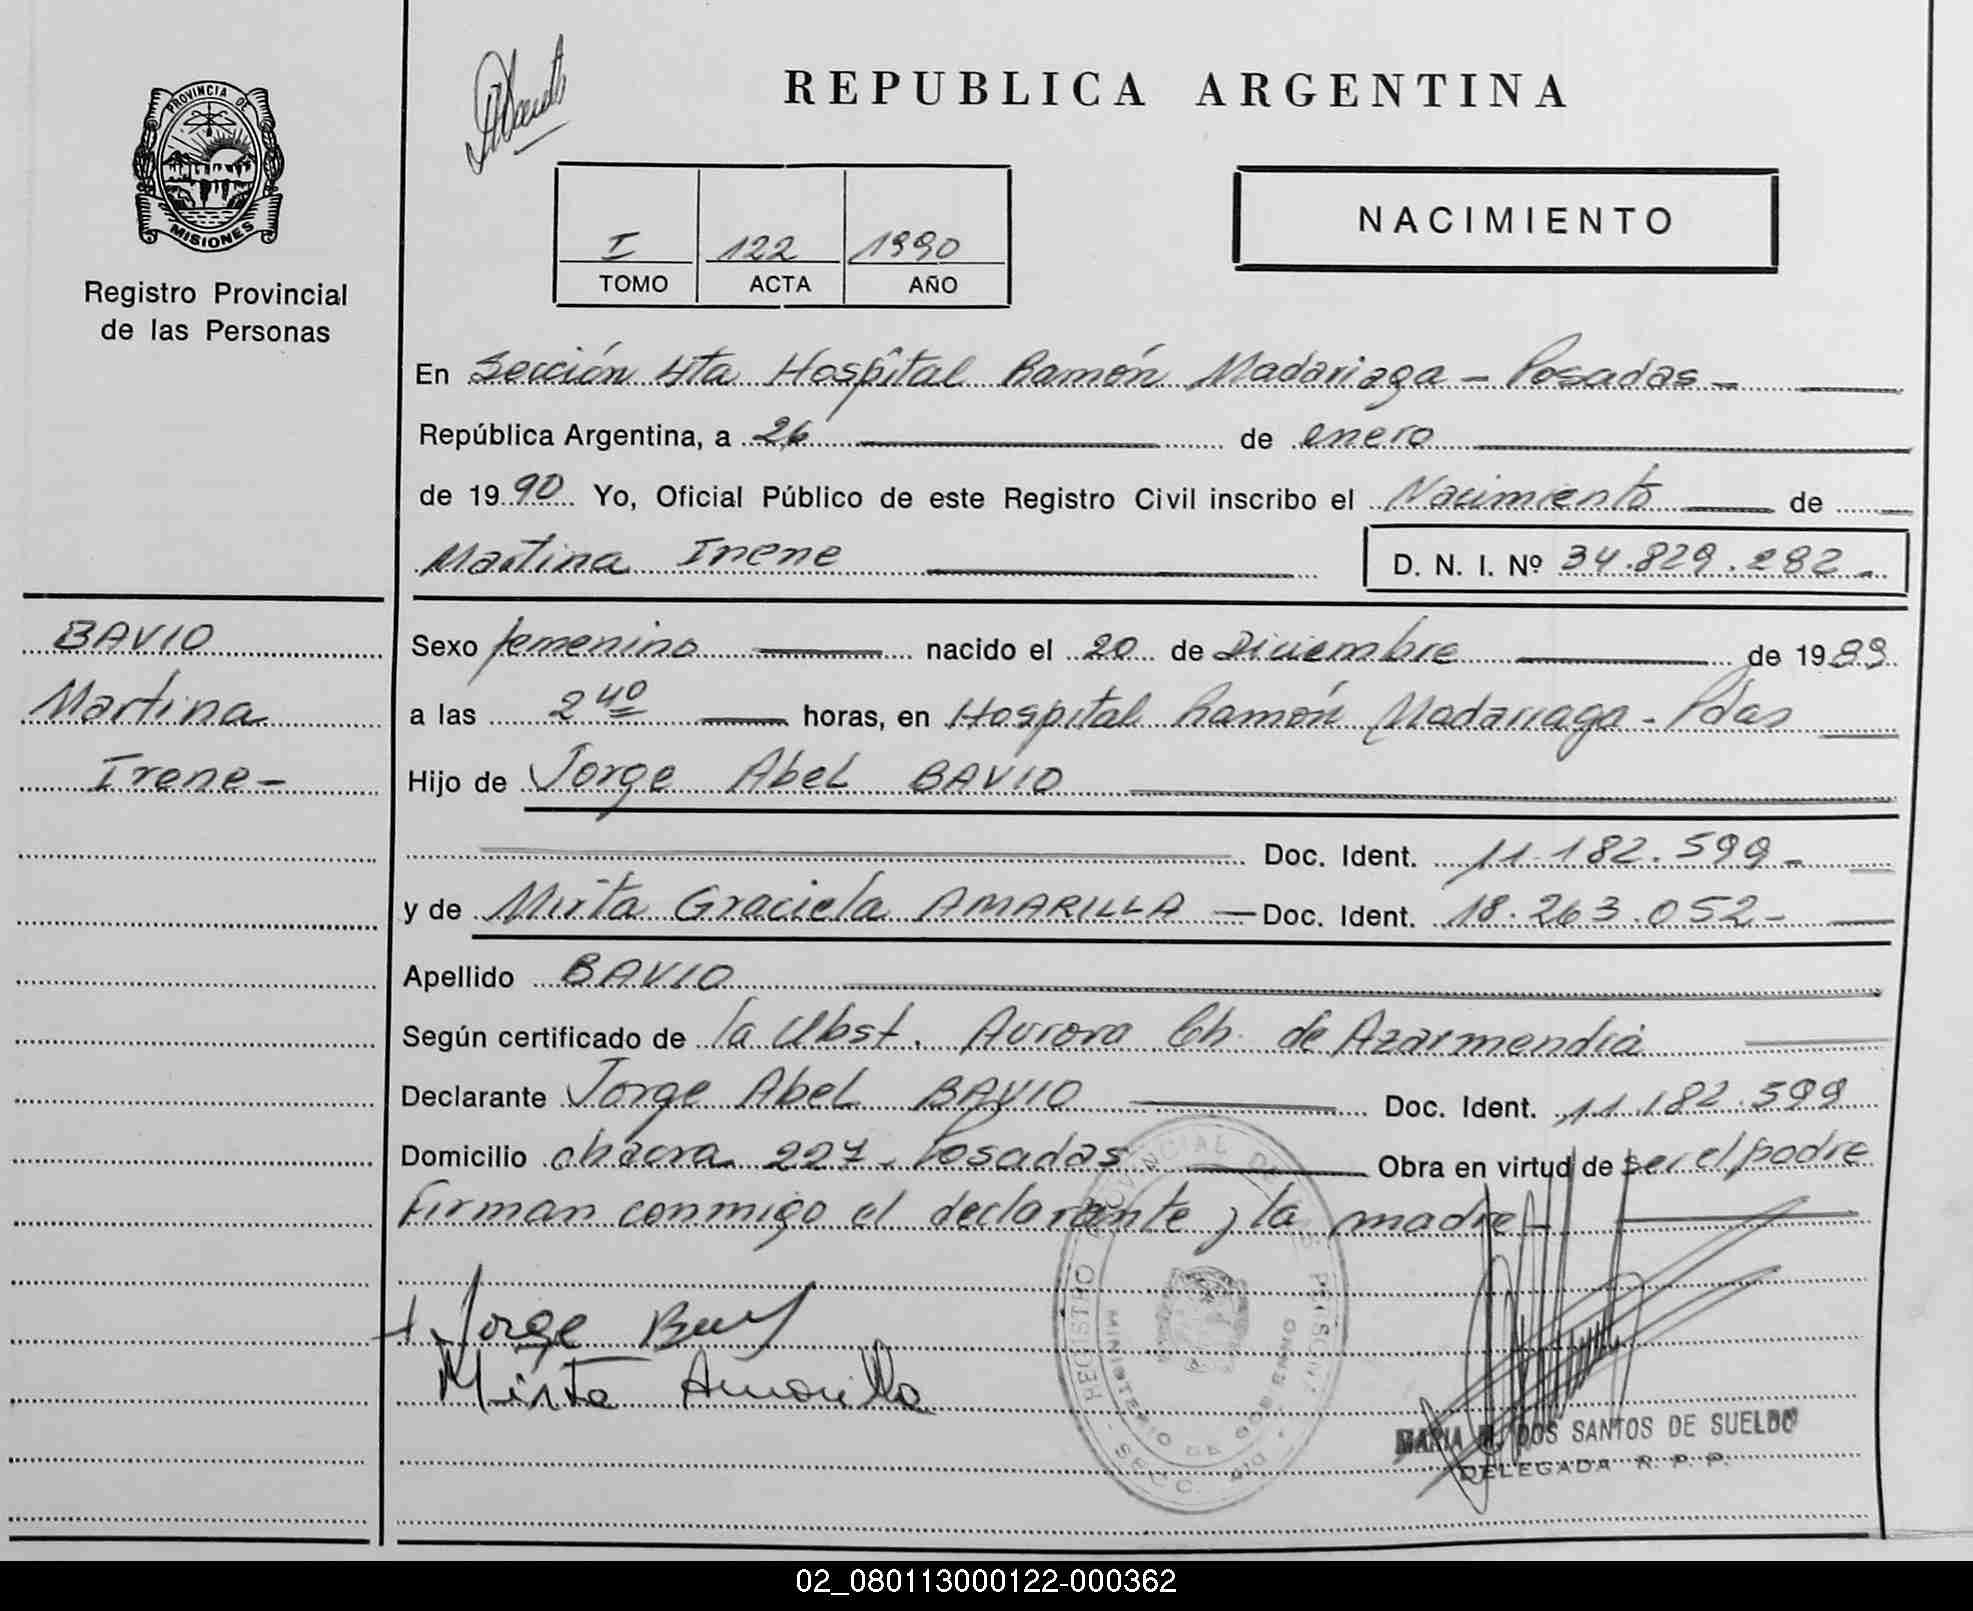 REPUBLICA ARGENTINA
PROVINCIA DE
MISIONES
Registro Provincial
de las Personas
I 122 1990
TOMO ACTA AÑO
NACIMIENTO
En Sección 4ta Hospital Ramón Madariaga - Posadas -
República Argentina, a 26 de enero
de 1990 Yo, Oficial Público de este Registro Civil inscribo el Nacimiento de
Martina Irene D. N. I. Nº 34.829.282-
BAVIO
Martina
Irene-
Sexo femenino nacido el 20 de Diciembre de 1989
a las 2 40 horas, en Hospital Ramón Madariaga - Pdas
Hijo de Jorge Abel BAVIO
Doc. Ident. 11.182.599-
y de Mirta Graciela AMARILLA - Doc. Ident. 18.263.052-
Apellido BAVIO
Según certificado de la Obst. Aurora Ch. de Azarmendia
Declarante Jorge Abel BAVIO Doc. Ident. 11.182.599
Domicilio chacra 227. Posadas Obra en virtud de ser el padre
Firman conmigo el declarante y la madre-
Jorge
Mirta Amarilla
REGISTRO PROVINCIAL DE
MINISTERIO DE GOBIERNO
MARIA DOS SANTOS DE SUELDO
DELEGADA R. P. P.
02_080113000122-000362